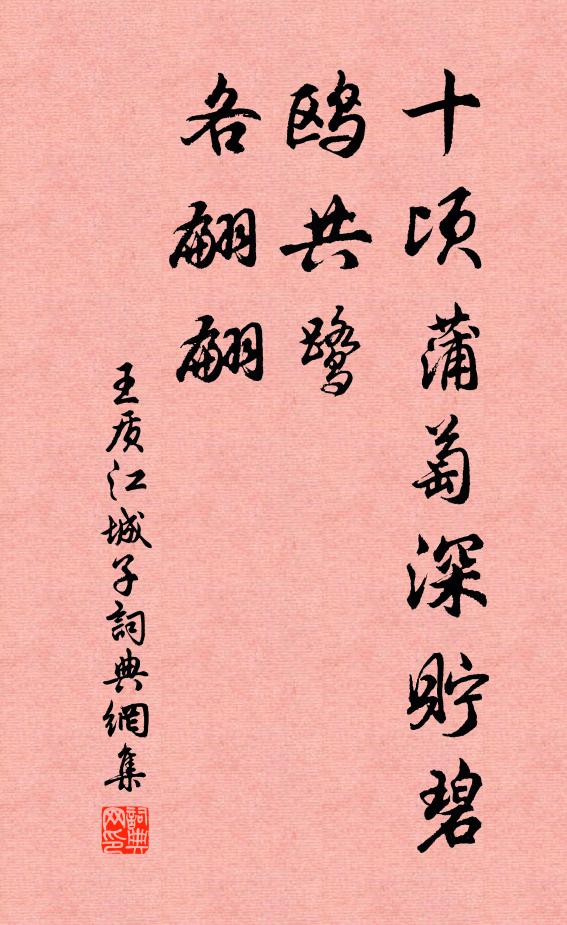 十顷蒲萄深贮碧
鸥共鹭
各翩翩
王质江城子詞典網集
詞典網印